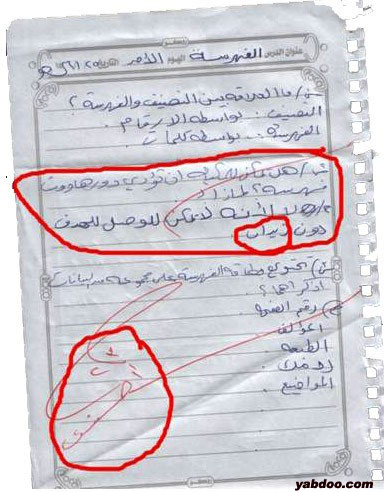 عنوان الدرس الفهرسة اليوم الأحد التاريخ
س/ ما العلاقة بين التصنيف والفهرسة ؟
التصنيف: بواسطة الارقام.
الفهرسة: بواسطة كلمات
س/ هل يمكن للمكتبة ان تؤدي دورها دون
فهرسة ؟ لماذا ؟
ج/ لا لأنه لا يمكن للوصل للهدف
دون
س/ تحتوي بطاقة الفهرسة على مجموعة من البيانات
اذكرها ؟
ج/ رقم
المؤلف
الطبعة
المواضيع
yabdoo.com